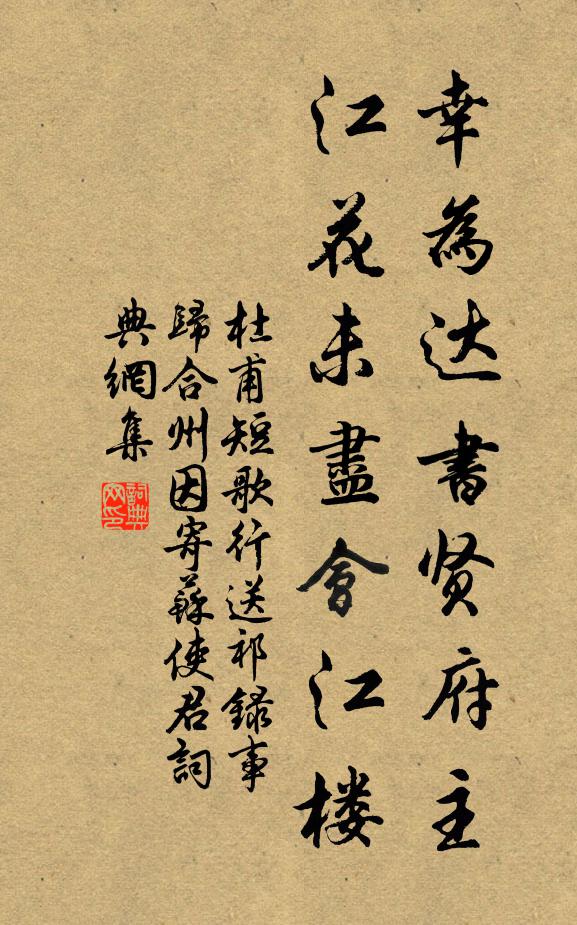 幸為达書贤府主
江花未盡會江楼
杜甫短歌行送祁録事
歸合州因寄蘇使君詞
典網集
詞典网印